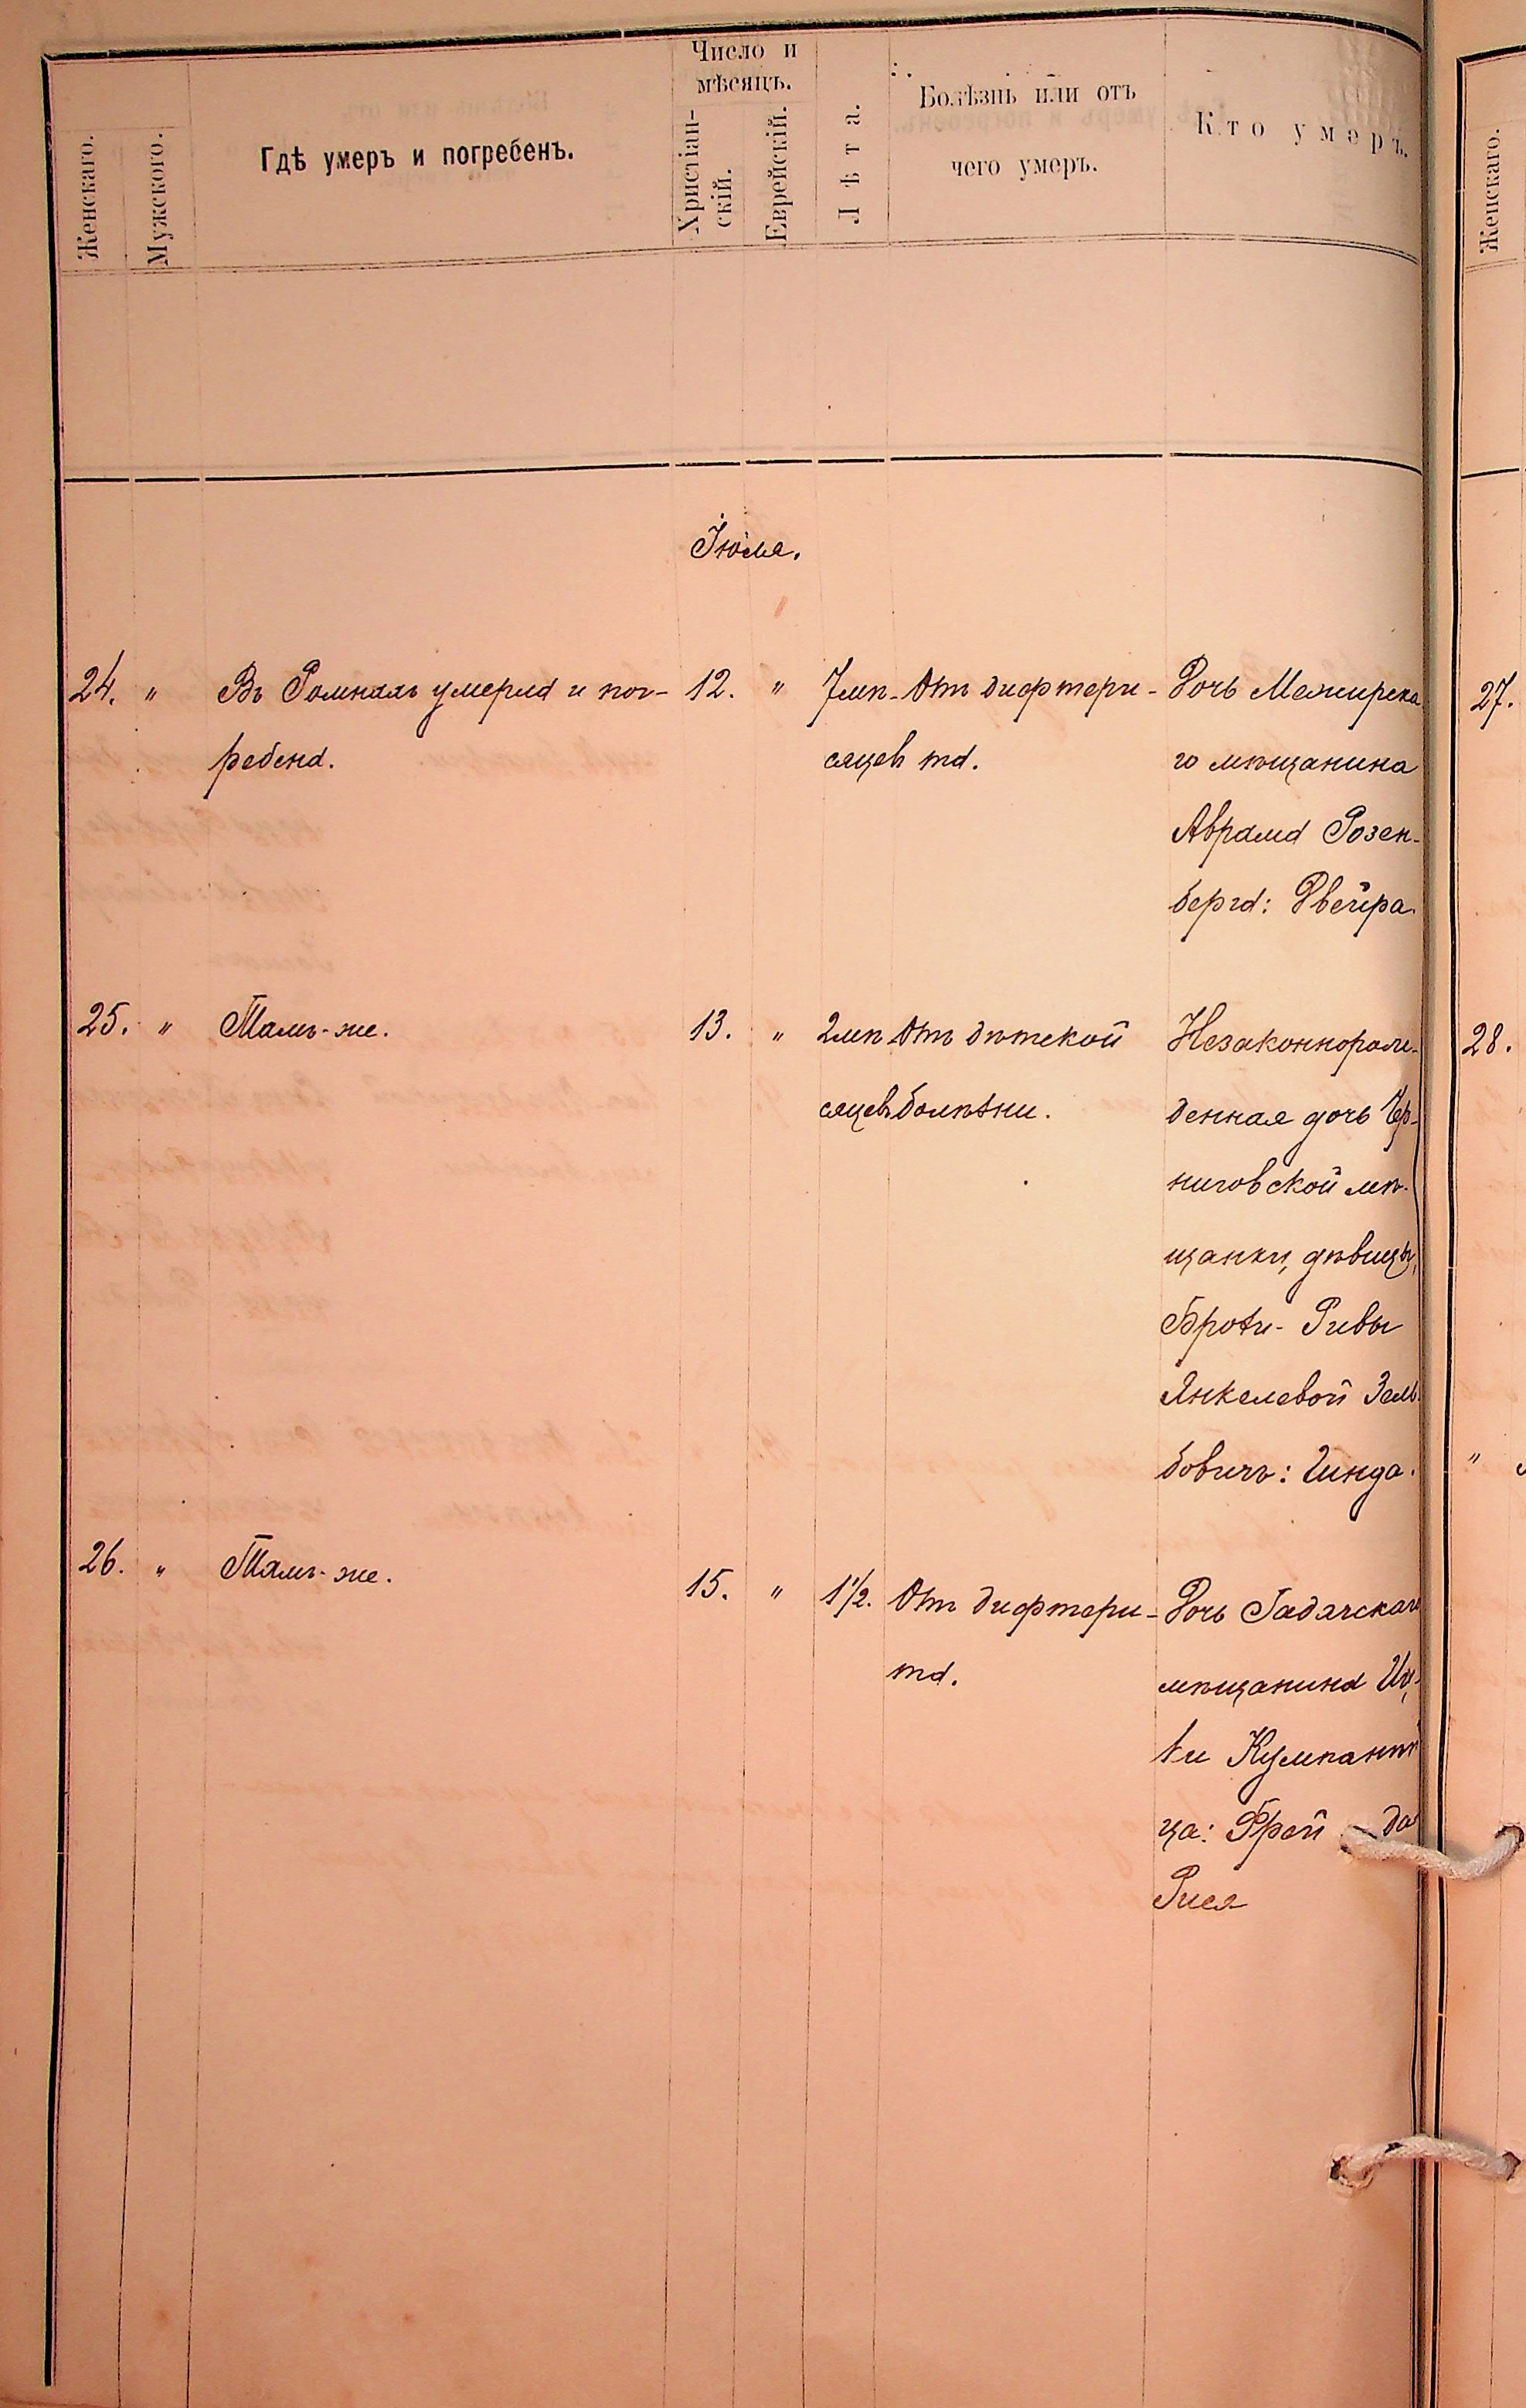 Женскаго.
Мужского.
Гдѣ умеръ и погребенъ.
Число и
мѣсяцъ.
Христіан-
скій.
Еврейскій.
Лѣта.
Болѣзнь или отъ
чего умеръ.
Кто умеръ.
Женскаго.
Іюля.
24. " Въ Ромнахъ умерла и пог- 12. " 7 мѣ- Отъ дифтери- Дочь Межирска
ребена. сяцевъ та. го мѣщанина
Аврама Розен-
берга: Двейра.
27.
25. " Тамъ-же. 13. " 2 мѣ Отъ дѣтской Незаконнорож-
сяцевъ болѣзни. денная дочь Чер-
ниговской мѣ-
щанки, дѣвицы,
Брохи-Ривы
Янкелевой Зель
бовичъ: Гинда.
28.
"
26. " Тамъ-же. 15. " 1 1/2. Отъ дифтери- Дочь Гадячскаго
та. мѣщанина Иц-
ки
ца: Фрей да
Рися